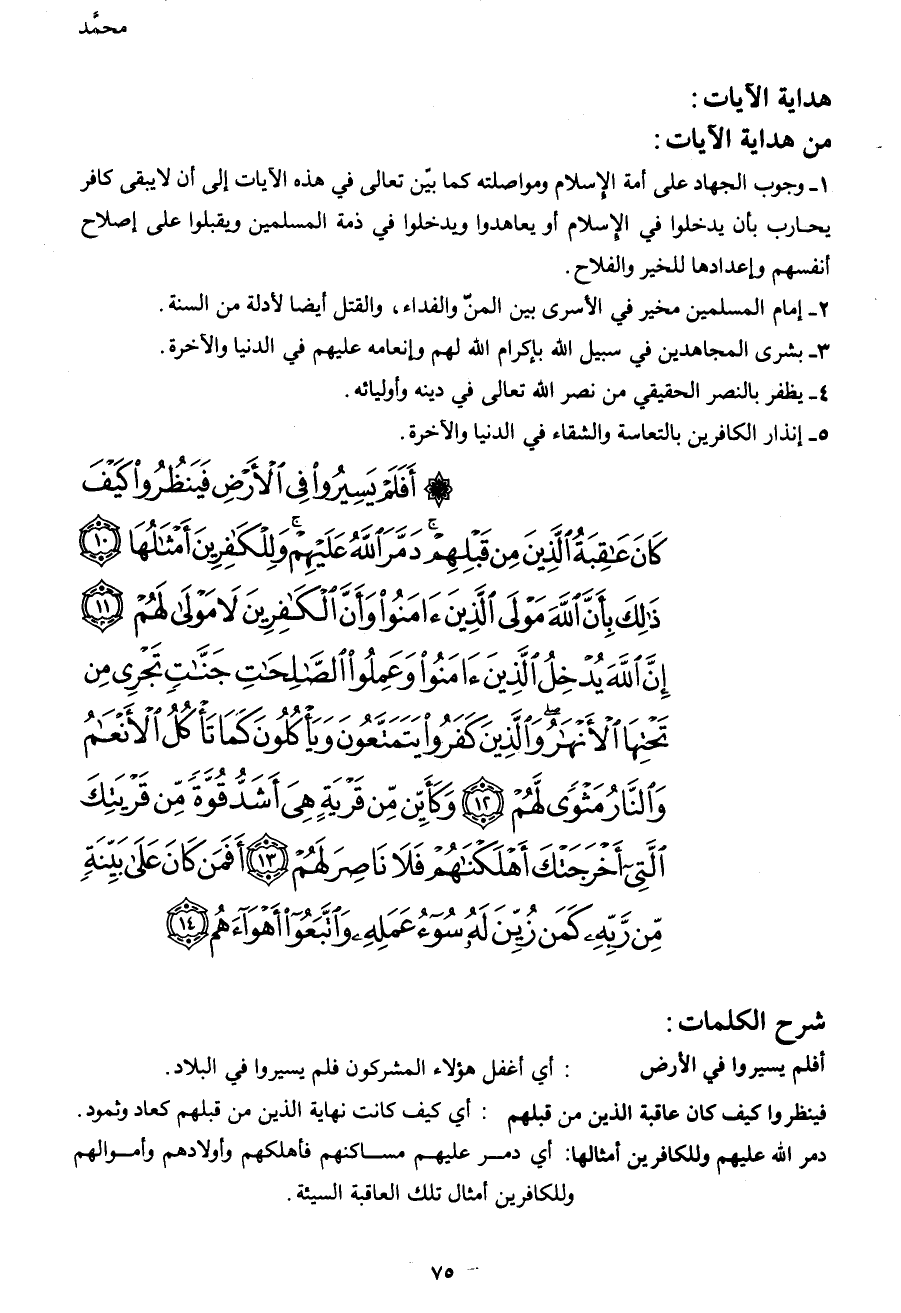 محمَّد
هداية الآيات :
من هداية الآيات :
١ـ وجوب الجهاد على أمة الإسلام ومواصلته كما بيّن تعالى في هذه الآيات إلى أن لايبقى كافر
يحـارب بأن يدخلوا في الإسلام أو يعاهدوا ويدخلوا في ذمة المسلمين ويقبلوا على إصلاح
أنفسهم وإعدادها للخير والفلاح .
٢ـ إمام المسلمين مخير في الأسرى بين المنّ والفداء ، والقتل أيضا لأدلة من السنة .
٣ـ بشرى المجاهدين في سبيل الله بإكرام الله لهم وإنعامه عليهم في الدنيا والآخرة .
٤ـ يظفر بالنصر الحقيقي من نصر الله تعالى في دينه وأوليائه .
٥ـ إنذار الكافرين بالتعاسة والشقاء في الدنيا والآخرة .
۞ أَفَلَمْ يَسِيرُوا۟ فِى ٱلْأَرْضِ فَيَنظُرُوا۟ كَيْفَ
كَانَ عَـٰقِبَةُ ٱلَّذِينَ مِن قَبْلِهِمْ ۚ دَمَّرَ ٱللَّهُ عَلَيْهِمْ ۖ وَلِلْكَـٰفِرِينَ أَمْثَـٰلُهَا ١٠
ذَٰلِكَ بِأَنَّ ٱللَّهَ مَوْلَى ٱلَّذِينَ ءَامَنُوا۟ وَأَنَّ ٱلْكَـٰفِرِينَ لَا مَوْلَىٰ لَهُمْ ١١
إِنَّ ٱللَّهَ يُدْخِلُ ٱلَّذِينَ ءَامَنُوا۟ وَعَمِلُوا۟ ٱلصَّـٰلِحَـٰتِ جَنَّـٰتٍ تَجْرِى مِن
تَحْتِهَا ٱلْأَنْهَـٰرُ ۖ وَٱلَّذِينَ كَفَرُوا۟ يَتَمَتَّعُونَ وَيَأْكُلُونَ كَمَا تَأْكُلُ ٱلْأَنْعَـٰمُ
وَٱلنَّارُ مَثْوًى لَّهُمْ ١٢ وَكَأَيِّن مِّن قَرْيَةٍ هِىَ أَشَدُّ قُوَّةً مِّن قَرْيَتِكَ
ٱلَّتِىٓ أَخْرَجَتْكَ أَهْلَكْنَـٰهُمْ فَلَا نَاصِرَ لَهُمْ ١٣ أَفَمَن كَانَ عَلَىٰ بَيِّنَةٍ
مِّن رَّبِّهِۦ كَمَن زُيِّنَ لَهُۥ سُوٓءُ عَمَلِهِۦ وَٱتَّبَعُوٓا۟ أَهْوَآءَهُم ١٤
شرح الكلمات :
أفلم يسيروا في الأرض : أي أغفل هؤلاء المشركون فلم يسيروا في البلاد .
فينظروا كيف كان عاقبة الذين من قبلهم : أي كيف كانت نهاية الذين من قبلهم كعاد وثمود .
دمر الله عليهم وللكافرين أمثالها: أي دمـر عليهـم مسـاكنهم فأهلكهم وأولادهم وأمـوالهم
وللكافرين أمثال تلك العاقبة السيئة .
٧٥